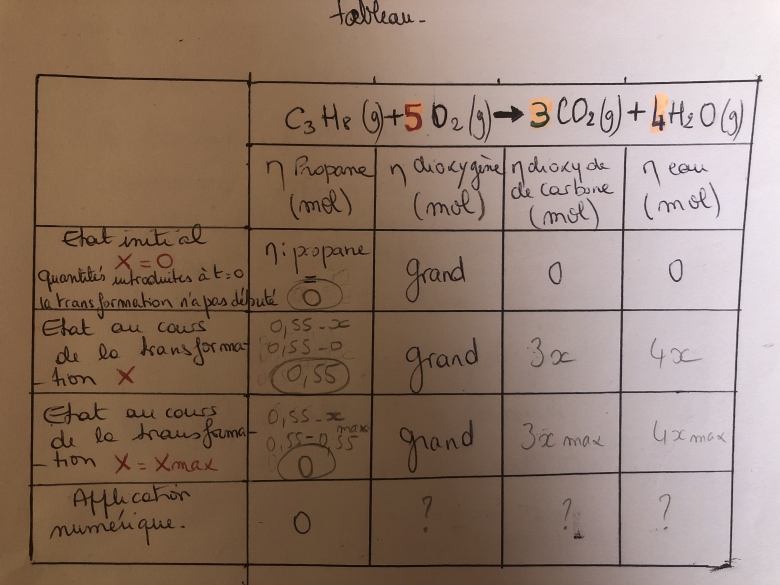 tableau.
C3 H8 (g) + 5 O2 (g) → 3 CO2 (g) + 4 H2O (g)
η Propane (mol)
η dioxygène (mol)
η dioxyde de carbone (mol)
η eau (mol)
Etat initial
X = 0
quantités introduites à t=0
la transformation n'a pas débuté
ηi propane
=
0
grand
0
0
Etat au cours
de la transforma-
-tion X
0,55 - x
0,55 - 0
0,55
grand
3x
4x
Etat au cours
de la transforma-
-tion X = Xmax
0,55 - x max
0,55 - 0,55
0
grand
3x max
4x max
Application
numérique.
0
?
?
?